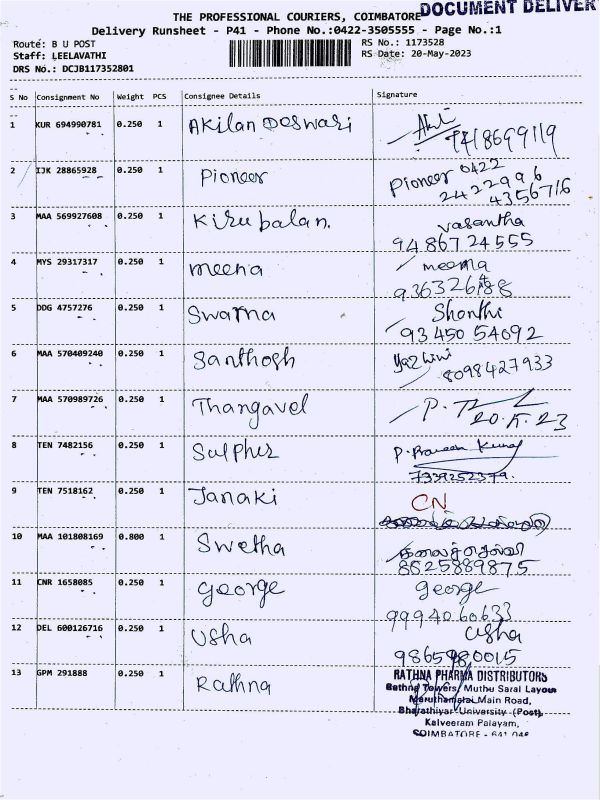 THE PROFESSIONAL COURIERS, COIMBATORE
DOCUMENT DELIVER
Delivery Runsheet - P41 - Phone No.:0422-3505555 - Page No.:1
Route: B U POST
RS No.: 1173528
Staff: LEELAVATHI
RS Date: 20-May-2023
DRS No.: DCJB117352801
S No Consignment No Weight PCS Consignee Details Signature
1 KUR 694990781 0.250 1 Akilan
2 IJK 28865928 0.250 1 Pioneer Pioneer 0422
2422996
4356716
3 MAA 569927608 0.250 1 Kirubalan. vasantha
94867 24555
4 MYS 29317317 0.250 1 meena meena
5 DDG 4757276 0.250 1 Swarna Shanthi
93450 54092
6 MAA 570409240 0.250 1 Santhosh Yazhini
8098427933
7 MAA 570989726 0.250 1 Thangavel
20.5.23
8 TEN 7482156 0.250 1 Sulpher P. Praveen Kumar
7339252379.
9 TEN 7518162 0.250 1 Janaki CN
10 MAA 101808169 0.800 1 Swetha கலைச்செல்வி
8525889875
11 CNR 1658085 0.250 1 George George
9994060633
12 DEL 600126716 0.250 1 Usha Usha
13 GPM 291888 0.250 1 Rathna RATHNA PHARMA DISTRIBUTORS
Rathna Towers, Muthu Saral Layout
Maruthamalai Main Road,
Bharathiyar University (Post),
Kalveeram Palayam,
COIMBATORE - 641 046